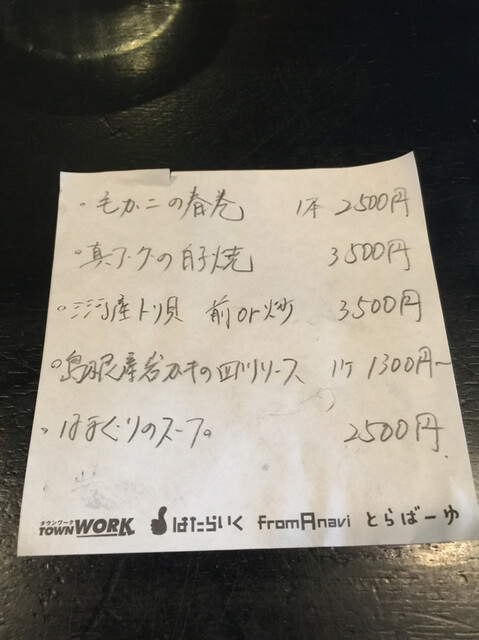 ・毛ガニの春巻 1本 2500円
・真フグの白子焼 3500円
・三河産トリ貝 前or炒 3500円
・島根産岩ガキの四川ソース 1ケ 1300円〜
・はまぐりのスープ。 2500円
タウンワーク
TOWN WORK はたらいく fromAnavi とらばーゆ